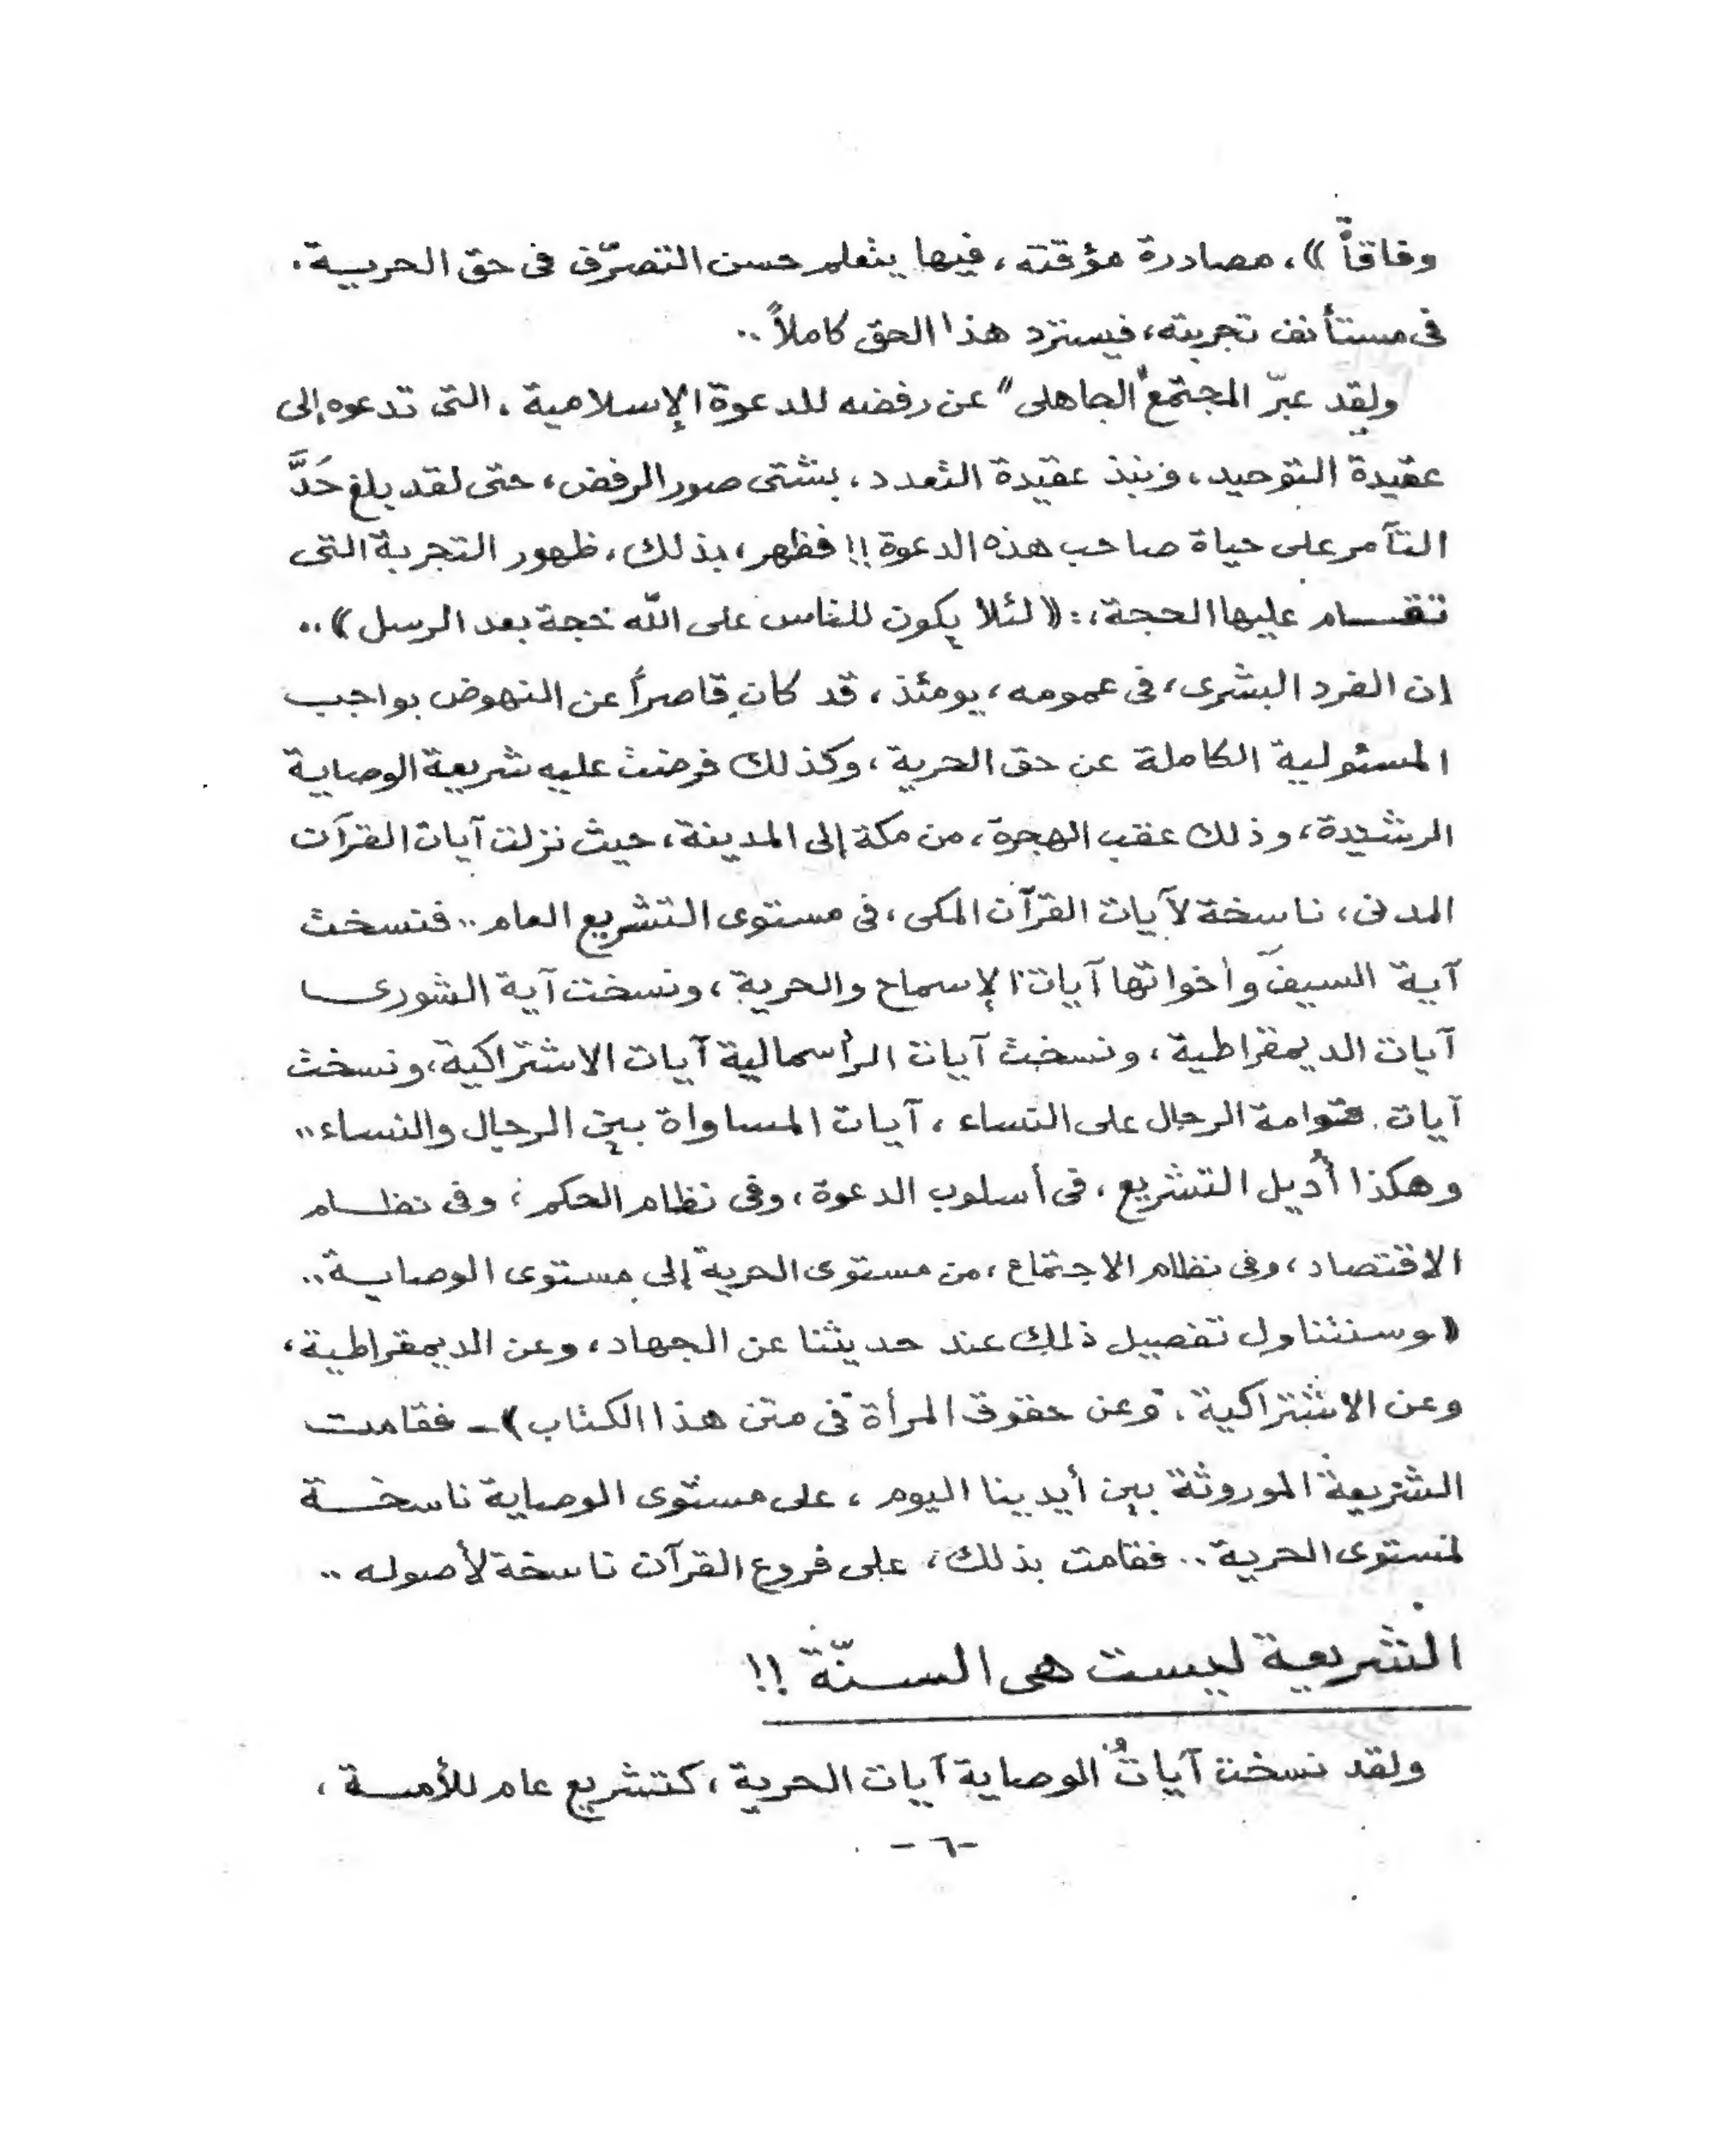 وفاقاً))، مصادرة مؤقتة، فيها يتعلم حسن التصرّف فى حق الحرية،
فى مستأنف تجربته، فيسترد هذا الحق كاملاً..
ولقد عبّر المجتمع "الجاهلى" عن رفضه للدعوة الإسلامية، التى تدعوه إلى
عقيدة التوحيد، ونبذ عقيدة التعدد، بشتى صور الرفض، حتى لقد بلغ حَدَّ
التآمر على حياة صاحب هذه الدعوة!! فظهر، بذلك، ظهور التجربة التى
تقــام عليها الحجة،: ((لئلا يكون للناس على الله حجة بعد الرسل))..
إن الفرد البشرى، فى عمومه، يومئذ، قد كان قاصراً عن النهوض بواجب
المسئولية الكاملة عن حق الحرية، وكذلك فرضت عليه شريعة الوصاية
الرشيدة، وذلك عقب الهجرة، من مكة إلى المدينة، حيث نزلت آيات القرآن
المدنى، ناسخة لآيات القرآن المكى، فى مستوى التشريع العام.. فنسخت
آية السيف وأخواتها آيات الإسماح والحرية، ونسخت آية الشورى
آيات الديمقراطية، ونسخت آيات الرأسمالية آيات الاشتراكية، ونسخت
آيات قوامة الرجال على النساء، آيات المساواة بين الرجال والنساء..
وهكذا أُديل التشريع، فى أسلوب الدعوة، وفى نظام الحكم، وفى نظــام
الاقتصاد، وفى نظام الاجتماع، من مستوى الحرية إلى مستوى الوصايــة..
((وسنتناول تفصيل ذلك عند حديثنا عن الجهاد، وعن الديمقراطية،
وعن الاشتراكية، وعن حقوق المرأة فى متن هذا الكتاب))ـ فقامت
الشريعة الموروثة بين أيدينا اليوم، على مستوى الوصاية ناسخــة
لمستوى الحرية.. فقامت بذلك، على فروع القرآن ناسخة لأصوله..
الشريعة ليست هى الســنّة!!
ولقد نسخت آياتُ الوصاية آيات الحرية، كتشريع عام للأمــة،
-٦-